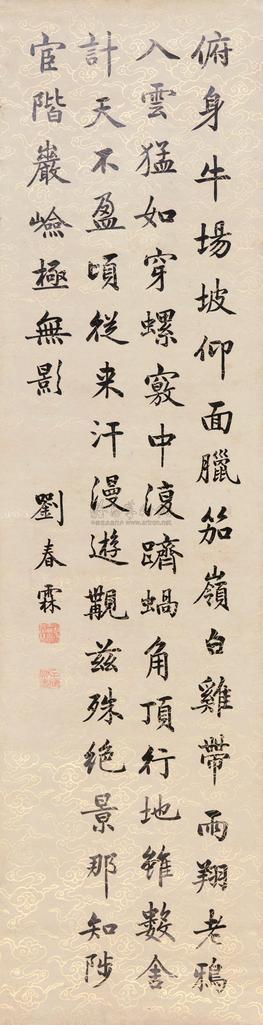 俯身牛場坡仰面臘笳嶺白雞帶雨翔老鴉
入雲猛如穿螺竅中復躋蝸角頂行地雖數舍
計天不盈頃從来汗漫遊覯茲殊絕景那知陟
官階巖嶮極無影
劉春霖